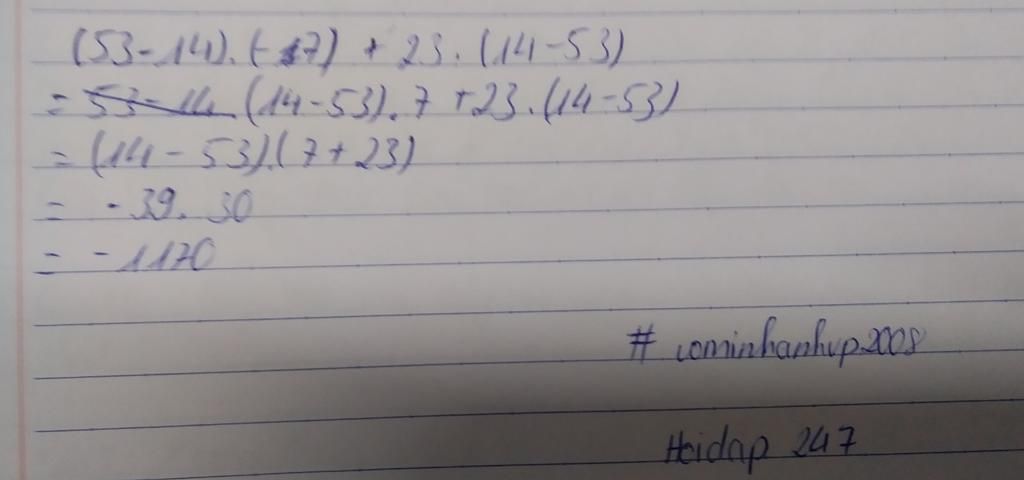 (53-14).(-7) + 23.(14-53)
= (14-53).7 +23.(14-53)
= (14-53).(7+23)
= -39. 30
= -1170
#
Hoidap 247